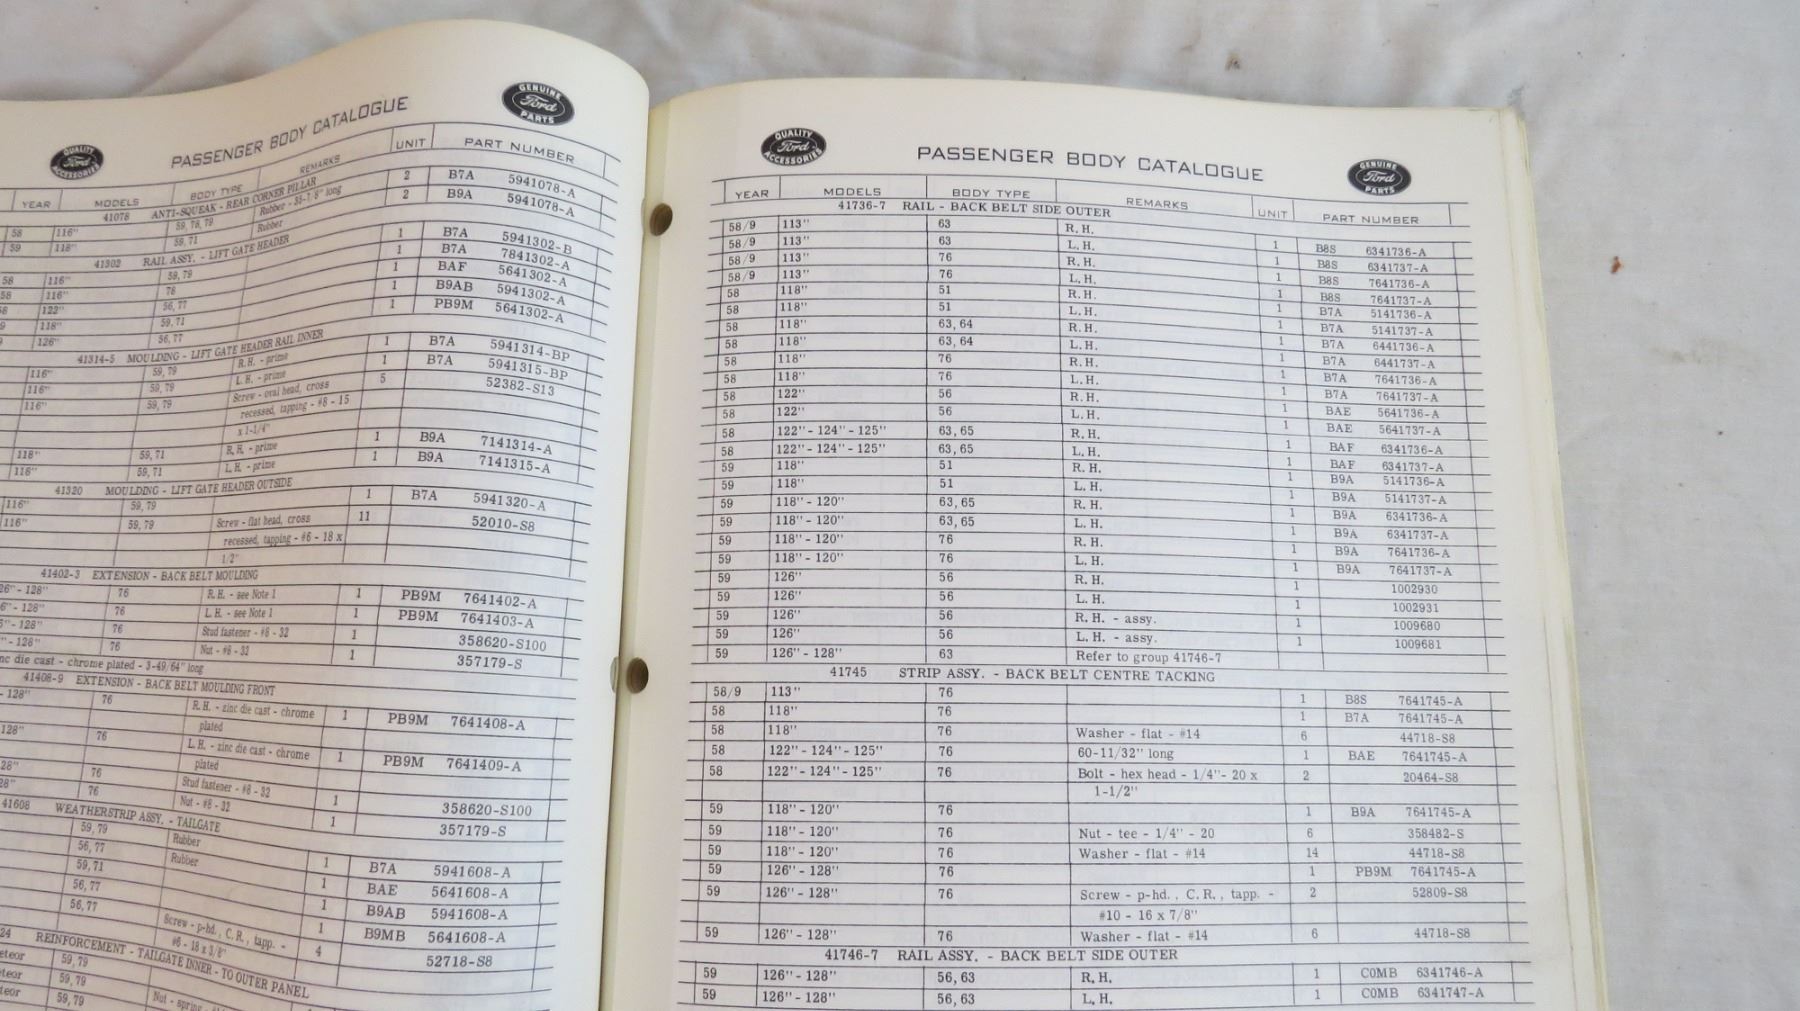 QUALITY
Ford
ACCESSORIES
PASSENGER BODY CATALOGUE
GENUINE
Ford
PARTS
YEAR MODELS BODY TYPE REMARKS UNIT PART NUMBER
41078 ANTI-SQUEAK - REAR CORNER PILLAR
58 116" 59, 78, 79 Rubber - 35-7/8" long 2 B7A 5941078-A
59 118" 59, 71 Rubber 2 B9A 5941078-A
41302 RAIL ASSY. - LIFT GATE HEADER
58 116" 59, 79 1 B7A 5941302-B
58 116" 78 1 B7A 7841302-A
8 122" 56, 77 1 BAF 5641302-A
9 118" 59, 71 1 B9AB 5941302-A
126" 56, 77 1 PB9M 5641302-A
41314-5 MOULDING - LIFT GATE HEADER RAIL INNER
116" 59, 79 R.H. - prime 1 B7A 5941314-BP
116" 59, 79 L.H. - prime 1 B7A 5941315-BP
116" 59, 79 Screw - oval head, cross 5 52382-S13
recessed, tapping - #8 - 15
x 1-1/4"
118" 59, 71 R.H. - prime 1 B9A 7141314-A
118" 59, 71 L.H. - prime 1 B9A 7141315-A
41320 MOULDING - LIFT GATE HEADER OUTSIDE
116" 59, 79 1 B7A 5941320-A
116" 59, 79 Screw - flat head, cross 11 52010-S8
recessed, tapping - #6 - 18 x
1/2"
41402-3 EXTENSION - BACK BELT MOULDING
26" - 128" 76 R.H. - see Note 1 1 PB9M 7641402-A
6" - 128" 76 L.H. - see Note 1 1 PB9M 7641403-A
" - 128" 76 Stud fastener - #8 - 32 1 358620-S100
" - 128" 76 Nut - #8 - 32 1 357179-S
nc die cast - chrome plated - 3-49/64" long
41408-9 EXTENSION - BACK BELT MOULDING FRONT
- 128" 76 R.H. - zinc die cast - chrome 1 PB9M 7641408-A
plated
128" 76 L.H. - zinc die cast - chrome 1 PB9M 7641409-A
plated
28" 76 Stud fastener - #8 - 32 1 358620-S100
28" 76 Nut - #8 - 32 1 357179-S
41608 WEATHERSTRIP ASSY. - TAILGATE
59, 79 Rubber 1 B7A 5941608-A
56, 77 Rubber 1 BAE 5641608-A
59, 71 1 B9AB 5941608-A
56, 77 1 B9MB 5641608-A
56, 77 Screw - p-hd., C.R., tapp. - 4 52718-S8
#6 - 18 x 3/8"
24 REINFORCEMENT - TAILGATE INNER - TO OUTER PANEL
eteor 59, 79
teor 59, 79
teor 59, 79 Nut - spring
QUALITY
Ford
ACCESSORIES
PASSENGER BODY CATALOGUE
GENUINE
Ford
PARTS
YEAR MODELS BODY TYPE REMARKS UNIT PART NUMBER
41736-7 RAIL - BACK BELT SIDE OUTER
58/9 113" 63 R.H. 1 B8S 6341736-A
58/9 113" 63 L.H. 1 B8S 6341737-A
58/9 113" 76 R.H. 1 B8S 7641736-A
58/9 113" 76 L.H. 1 B8S 7641737-A
58 118" 51 R.H. 1 B7A 5141736-A
58 118" 51 L.H. 1 B7A 5141737-A
58 118" 63, 64 R.H. 1 B7A 6441736-A
58 118" 63, 64 L.H. 1 B7A 6441737-A
58 118" 76 R.H. 1 B7A 7641736-A
58 118" 76 L.H. 1 B7A 7641737-A
58 122" 56 R.H. 1 BAE 5641736-A
58 122" 56 L.H. 1 BAE 5641737-A
58 122" - 124" - 125" 63, 65 R.H. 1 BAF 6341736-A
58 122" - 124" - 125" 63, 65 L.H. 1 BAF 6341737-A
59 118" 51 R.H. 1 B9A 5141736-A
59 118" 51 L.H. 1 B9A 5141737-A
59 118" - 120" 63, 65 R.H. 1 B9A 6341736-A
59 118" - 120" 63, 65 L.H. 1 B9A 6341737-A
59 118" - 120" 76 R.H. 1 B9A 7641736-A
59 118" - 120" 76 L.H. 1 B9A 7641737-A
59 126" 56 R.H. 1 1002930
59 126" 56 L.H. 1 1002931
59 126" 56 R.H. - assy. 1 1009680
59 126" 56 L.H. - assy. 1 1009681
59 126" - 128" 63 Refer to group 41746-7
41745 STRIP ASSY. - BACK BELT CENTRE TACKING
58/9 113" 76 1 B8S 7641745-A
58 118" 76 1 B7A 7641745-A
58 118" 76 Washer - flat - #14 6 44718-S8
58 122" - 124" - 125" 76 60-11/32" long 1 BAE 7641745-A
58 122" - 124" - 125" 76 Bolt - hex head - 1/4" - 20 x 2 20464-S8
1-1/2"
59 118" - 120" 76 1 B9A 7641745-A
59 118" - 120" 76 Nut - tee - 1/4" - 20 6 358482-S
59 118" - 120" 76 Washer - flat - #14 14 44718-S8
59 126" - 128" 76 1 PB9M 7641745-A
59 126" - 128" 76 Screw - p-hd., C.R., tapp. - 2 52809-S8
#10 - 16 x 7/8"
59 126" - 128" 76 Washer - flat - #14 6 44718-S8
41746-7 RAIL ASSY. - BACK BELT SIDE OUTER
59 126" - 128" 56, 63 R.H. 1 COMB 6341746-A
59 126" - 128" 56, 63 L.H. 1 COMB 6341747-A